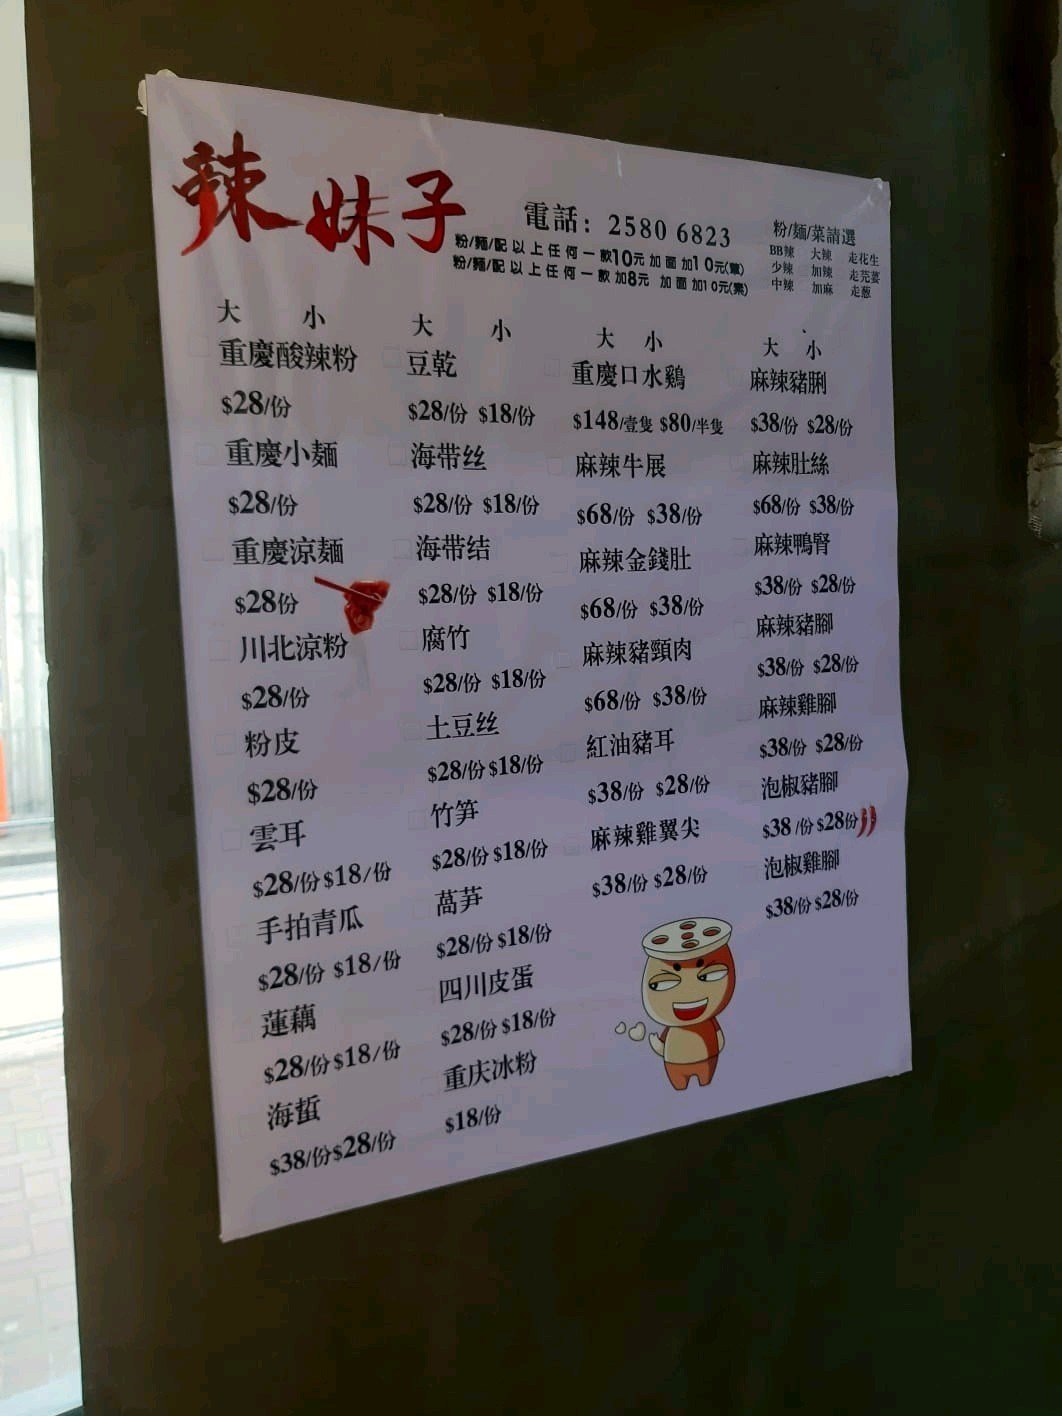 辣妹子
電話: 2580 6823
粉/麵/配以上任何一款10元 加面加10元(葷)
粉/麵/配以上任何一款加8元 加面加10元(素)
粉/麵/菜請選
BB辣 大辣 走花生
少辣 加辣 走芫荽
中辣 加麻 走蔥
大 小
重慶酸辣粉
$28/份
重慶小麵
$28/份
重慶涼麵
$28份
川北涼粉
$28/份
粉皮
$28/份
雲耳
$28/份 $18/份
手拍青瓜
$28/份 $18/份
蓮藕
$28/份 $18/份
海蜇
$38/份 $28/份
大 小
豆乾
$28/份 $18/份
海带丝
$28/份 $18/份
海带结
$28/份 $18/份
腐竹
$28/份 $18/份
土豆丝
$28/份 $18/份
竹笋
$28/份 $18/份
萵笋
$28/份 $18/份
四川皮蛋
$28/份 $18/份
重庆冰粉
$18/份
大 小
重慶口水鷄
$148/壹隻 $80/半隻
麻辣牛展
$68/份 $38/份
麻辣金錢肚
$68/份 $38/份
麻辣豬頸肉
$68/份 $38/份
紅油豬耳
$38/份 $28/份
麻辣雞翼尖
$38/份 $28/份
大 小
麻辣豬脷
$38/份 $28/份
麻辣肚絲
$68/份 $38/份
麻辣鴨腎
$38/份 $28/份
麻辣豬腳
$38/份 $28/份
麻辣雞腳
$38/份 $28/份
泡椒豬腳
$38/份 $28份
泡椒雞腳
$38/份 $28/份